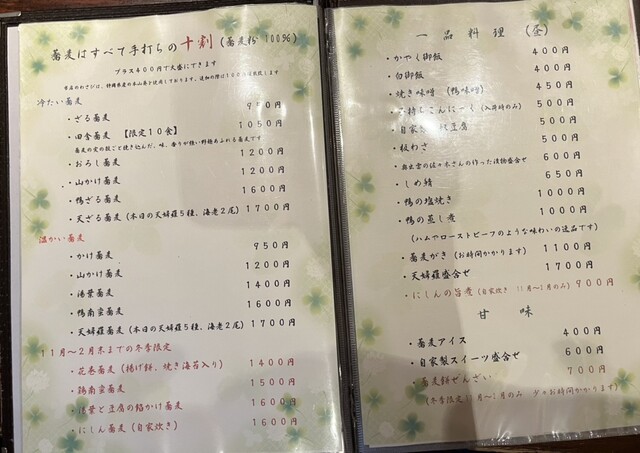 蕎麦はすべて手打ちの十割(蕎麦粉100%)
プラス400円で大盛にできます
冷たい蕎麦
・ざる蕎麦 950円
・田舎蕎麦 【限定10食】 1050円
・おろし蕎麦 1200円
・山かけ蕎麦 1200円
・鴨ざる蕎麦 1600円
・天ざる蕎麦(本日の天婦羅5種、海老2尾) 1700円
温かい蕎麦
・かけ蕎麦 950円
・山かけ蕎麦 1200円
・湯葉蕎麦 1400円
・鴨南蛮蕎麦 1600円
・天婦羅蕎麦(本日の天婦羅5種、海老2尾) 1700円
11月~2月末までの冬季限定
・花巻蕎麦(揚げ餅、焼き海苔入り) 1400円
・鶏南蛮蕎麦 1500円
・湯葉と豆腐の餡かけ蕎麦 1600円
・にしん蕎麦(自家炊き) 1600円
一品料理(昼)
・かやく御飯 400円
・白御飯 400円
・焼き味噌(鴨味噌) 450円
・子持ちこんにゃく(入荷時のみ) 500円
・自家製 豆腐 500円
・板わさ 500円
・奥出雲の佐々木さんの作った漬物盛合せ 600円
・しめ鯖 650円
・鴨の塩焼き 1000円
・鴨の蒸し煮 1000円
(ハムやローストビーフのような味わいの逸品です)
・蕎麦がき(お時間かかります) 1100円
・天婦羅盛合せ 1700円
・にしんの旨煮(自家炊き 11月~2月のみ) 900円
甘味
・蕎麦アイス 400円
・自家製スイーツ盛合せ 600円
・蕎麦餅ぜんざい 700円
(冬季限定11月~2月のみ 少々お時間かかります)